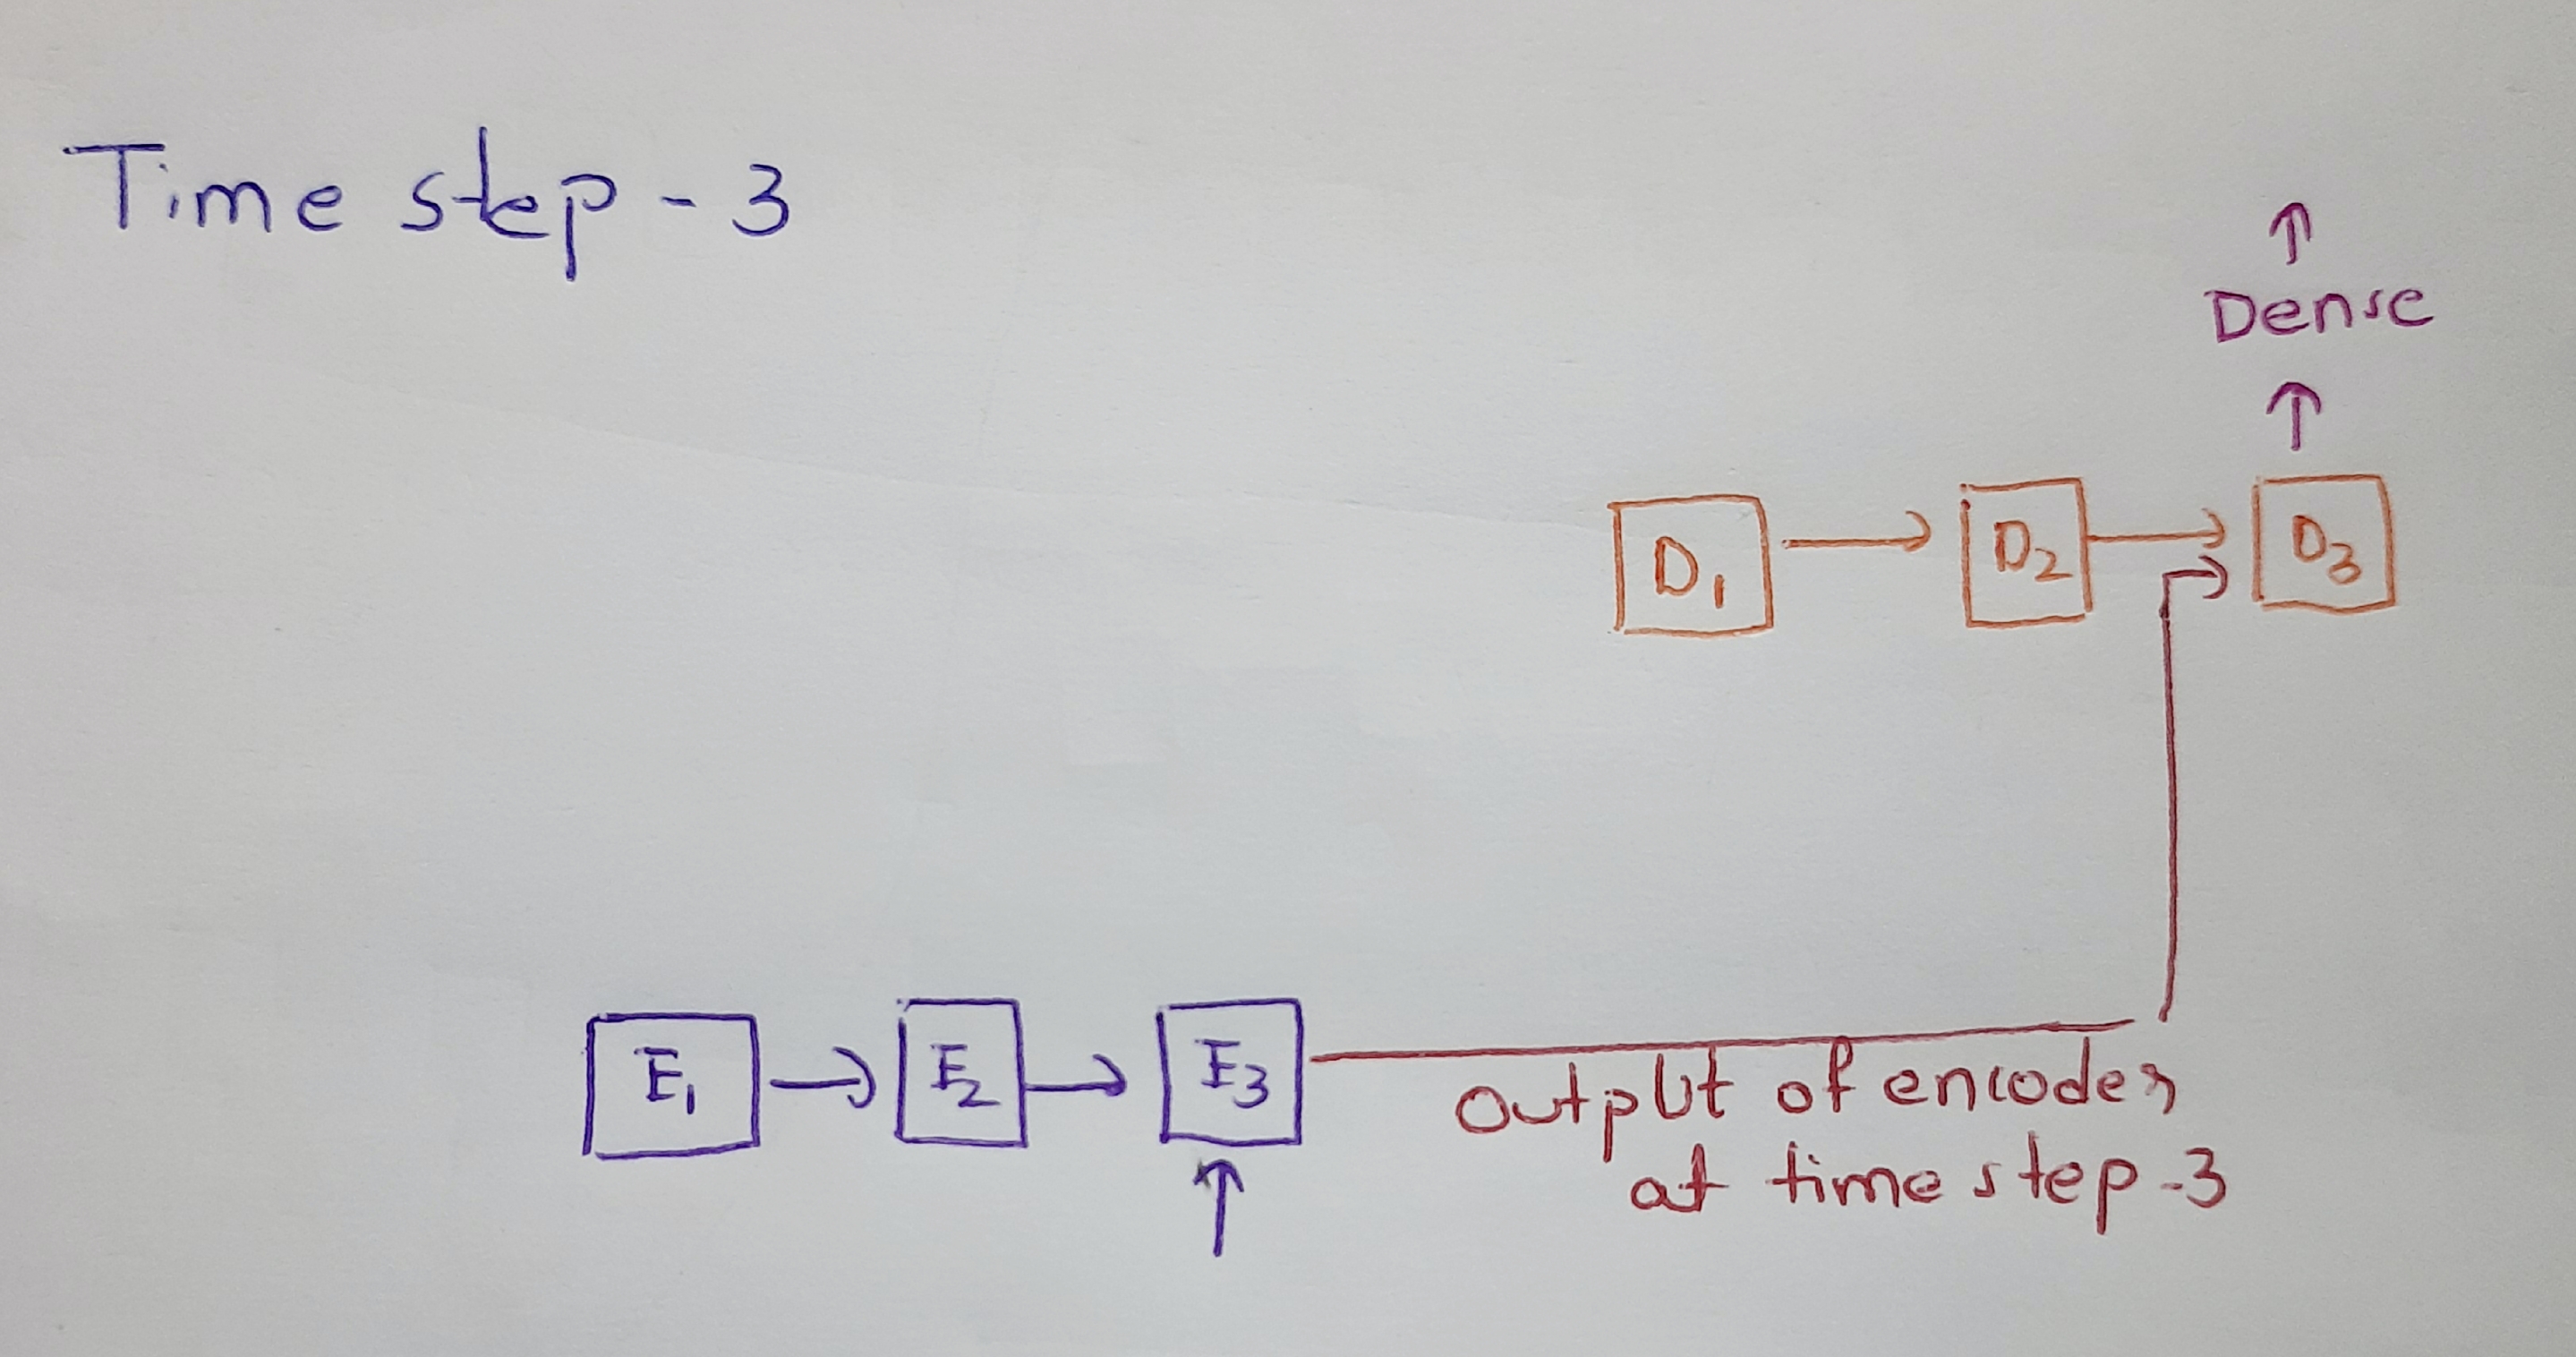 Time step - 3
Dense
D1 D2 D3
E1 E2 E3
output of encoder
at time step -3